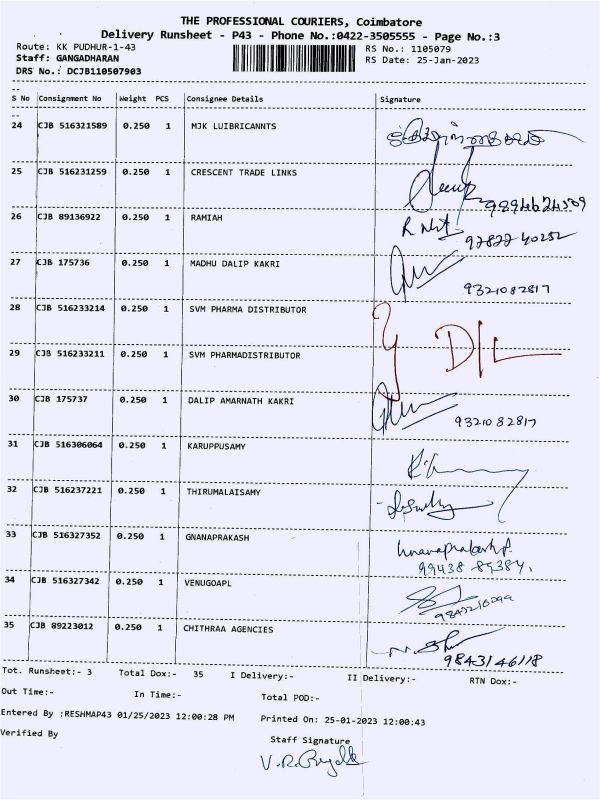 THE PROFESSIONAL COURIERS, Coimbatore
Delivery Runsheet - P43 - Phone No.:0422-3505555 - Page No.:3
Route: KK PUDHUR-1-43 RS No.: 1105079
Staff: GANGADHARAN RS Date: 25-Jan-2023
DRS No.: DCJB110507903
S No Consignment No Weight PCS Consignee Details Signature
24 CJB 516321589 0.250 1 MJK LUIBRICANNTS
25 CJB 516231259 0.250 1 CRESCENT TRADE LINKS
26 CJB 89136922 0.250 1 RAMIAH
27 CJB 175736 0.250 1 MADHU DALIP KAKRI 9321082817
28 CJB 516233214 0.250 1 SVM PHARMA DISTRIBUTOR
29 CJB 516233211 0.250 1 SVM PHARMADISTRIBUTOR
30 CJB 175737 0.250 1 DALIP AMARNATH KAKRI 9321082817
31 CJB 516306064 0.250 1 KARUPPUSAMY
32 CJB 516237221 0.250 1 THIRUMALAISAMY
33 CJB 516327352 0.250 1 GNANAPRAKASH
34 CJB 516327342 0.250 1 VENUGOAPL
35 CJB 89223012 0.250 1 CHITHRAA AGENCIES 9843146118
Tot. Runsheet:- 3 Total Dox:- 35 I Delivery:- II Delivery:- RTN Dox:-
Out Time:- In Time:- Total POD:-
Entered By :RESHMAP43 01/25/2023 12:00:28 PM Printed On: 25-01-2023 12:00:43
Verified By Staff Signature